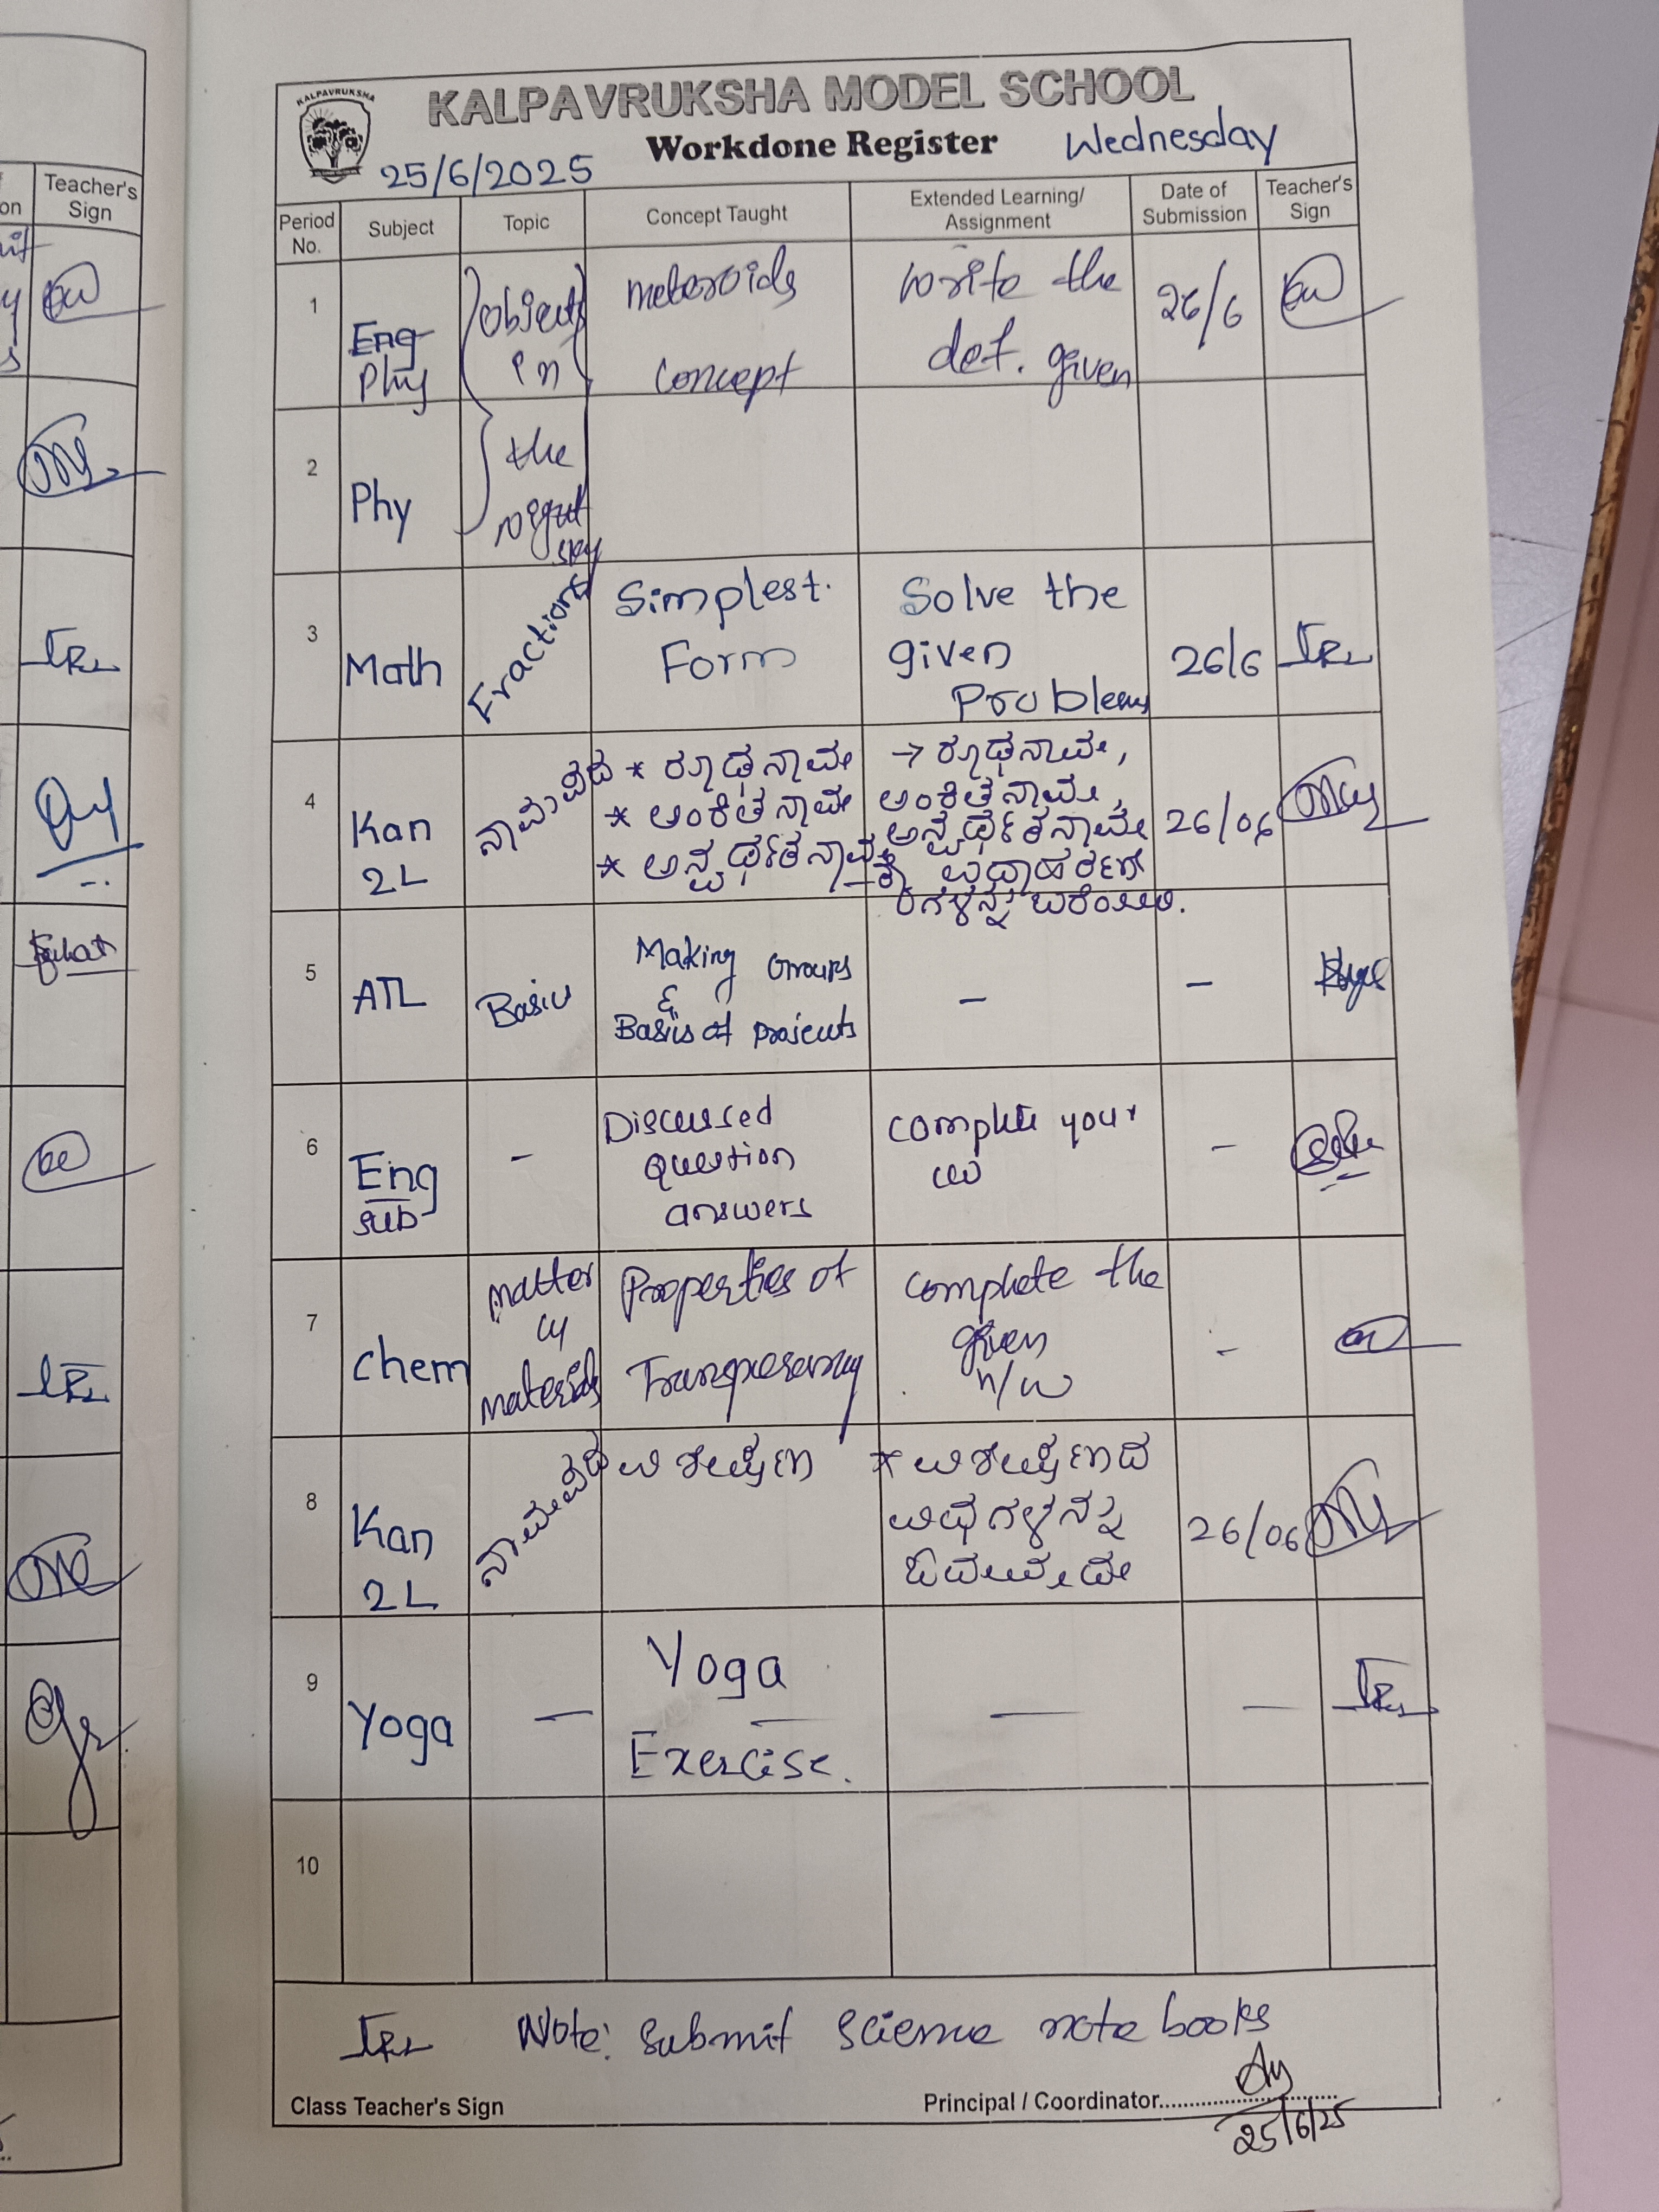 KALPAVRUKSHA
KALPAVRUKSHA MODEL SCHOOL
Workdone Register
Wednesday
25/6/2025
Period No.
Subject
Topic
Concept Taught
Extended Learning/ Assignment
Date of Submission
Teacher's Sign
1
Eng
Phy
Objects
in
meteroids
concept
write the
def. given
26/6
2
Phy
the
night
sky
3
Math
Fractions
Simplest.
Form
Solve the
given
Problems
26/6
4
Kan
2L
ನಾಮಪದ
* ರೂಢನಾಮ
* ಅಂಕಿತನಾಮ
* ಅನ್ವರ್ಥಕನಾಮ
→ ರೂಢನಾಮ,
ಅಂಕಿತನಾಮ,
ಅನ್ವರ್ಥಕನಾಮ
26/06
5
ATL
Basic
Making Groups
&
Basis of projects
-
-
6
Eng
sub
-
Discussed
question
answers
complete your
cw
-
7
Chem
matter
materials
Properties of
complete the
given
n/w
-
8
Kan
2L
ನಾಮಪದ
ವಿಶೇಷಣ
* ವಿಶೇಷಣದ
ವಿಧಗಳನ್ನು
26/06
9
Yoga
-
Yoga
Exercise.
-
-
10
Note: Submit Science note books
Class Teacher's Sign
Principal / Coordinator
25/6/25
Teacher's
Sign